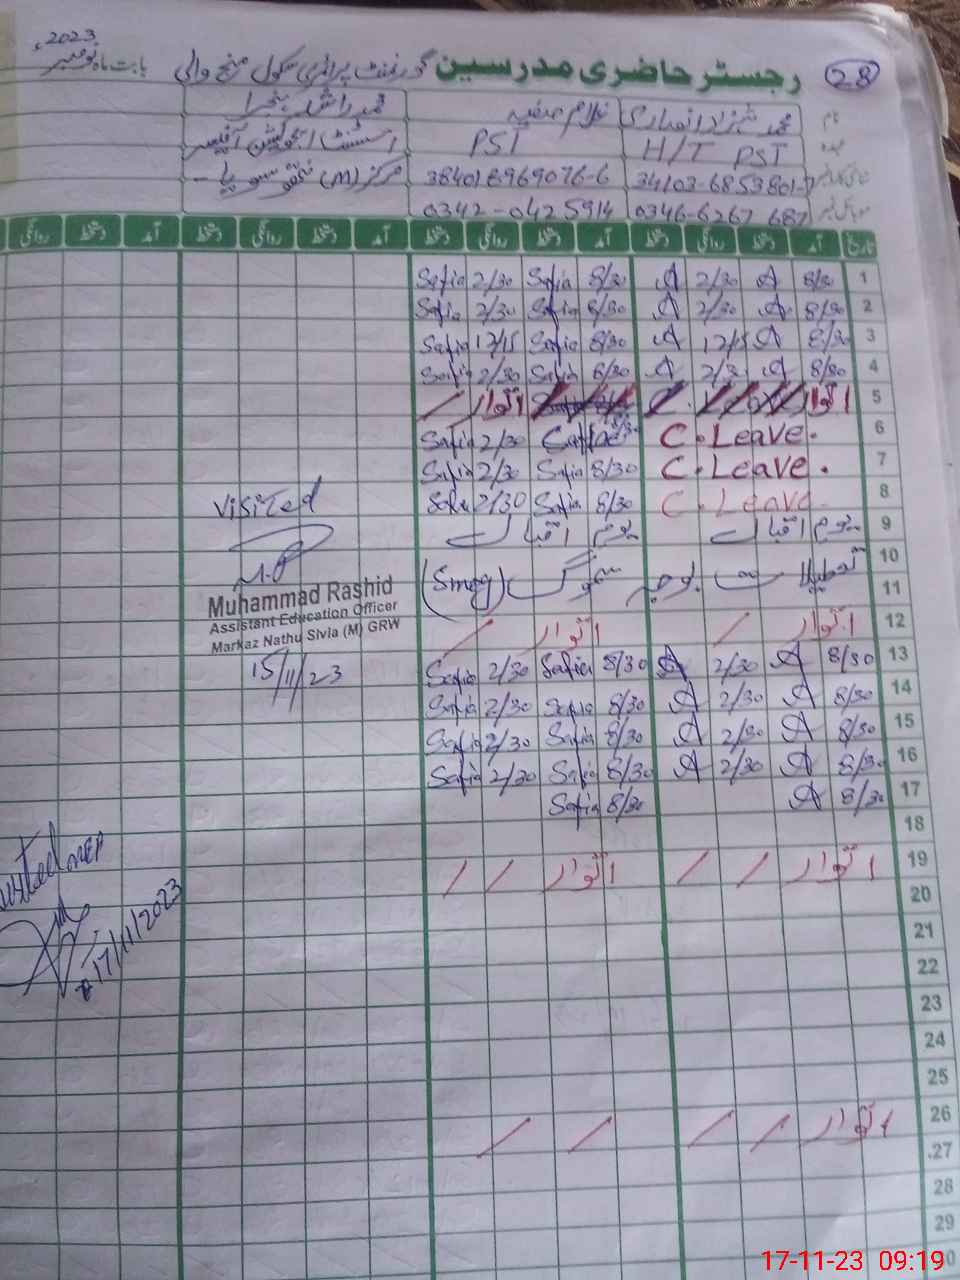 28 رجسٹر حاضری مدرسین گورنمنٹ پرائمری سکول بابت ماہ نومبر 2023ء
نام محمد غلام صفیہ محمد راشد
عہدہ H/T PST PST اسسٹنٹ ایجوکیشن آفیسر
34103-6853801-7 384018969076-6 مرکز (M)
موبائل نمبر 0346-6267 687 0342-0425914
تاریخ آمد دستخط روانگی دستخط آمد دستخط روانگی دستخط آمد دستخط روانگی دستخط آمد دستخط روانگی
1 8/30 A 2/30 A 8/30 Safia 2/30 Safia
2 8/30 A 2/30 A 8/30 Safia 2/30 Safia
3 8/30 A 12/15 A 8/30 Safia 12/15 Safia
4 8/30 A 2/30 A 8/30 Safia 2/30 Safia
5 اتوار اتوار
6 C. Leave. 8/30 Safia 2/30 Safia
7 C. Leave. 8/30 Safia 2/30 Safia
8 C. Leave. 8/30 Safia 2/30 Safia
9 یوم اقبال یوم اقبال
10 تعطیلات بوجہ سموگ (Smog)
11
12 اتوار / اتوار /
13 8/30 A 2/30 A 8/30 Safia 2/30 Safia
14 8/30 A 2/30 A 8/30 Safia 2/30 Safia
15 8/30 A 2/30 A 8/30 Safia 2/30 Safia
16 8/30 A 2/30 A 8/30 Safia 2/30 Safia
17 8/30 A 8/30 Safia
18
19 اتوار / / اتوار / /
20
21
22
23
24
25
26 اتوار / / / /
27
28
29
Visited
Muhammad Rashid
Assistant Education Officer
Markaz Nathu Sivia (M) GRW
15/11/23
Visited
17/11/2023
17-11-23 09:19